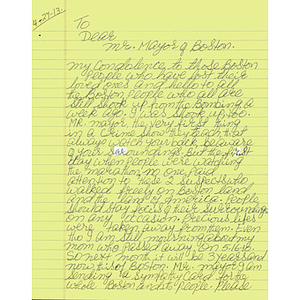 4-24-13.
To
Dear
Mr. Mayor of Boston.
my Condolence to those Boston
People who have lost their
loved ones and hello to all
the Boston People who all are
still shook up from the Bombing a
week ago. I was shook up too.
MR. mayor the very first thing
in a crime show they teach that
always watch your back, beware
of your surroundings. But the first
day when people were watching
the maration, no one paid
attention to these 2 suspects who
walked freely on Boston land,
and the land of america. People
should stay focus of their surroundings
on any occasion. Precious lifes
were taken away from them. Even
tho I am still mourning about my
mom who passed away on
So next month it will be 3 years and
now it is Boston. MR. mayor I am
sending a Sympathy Card to the
whole Boston and st. People. Please